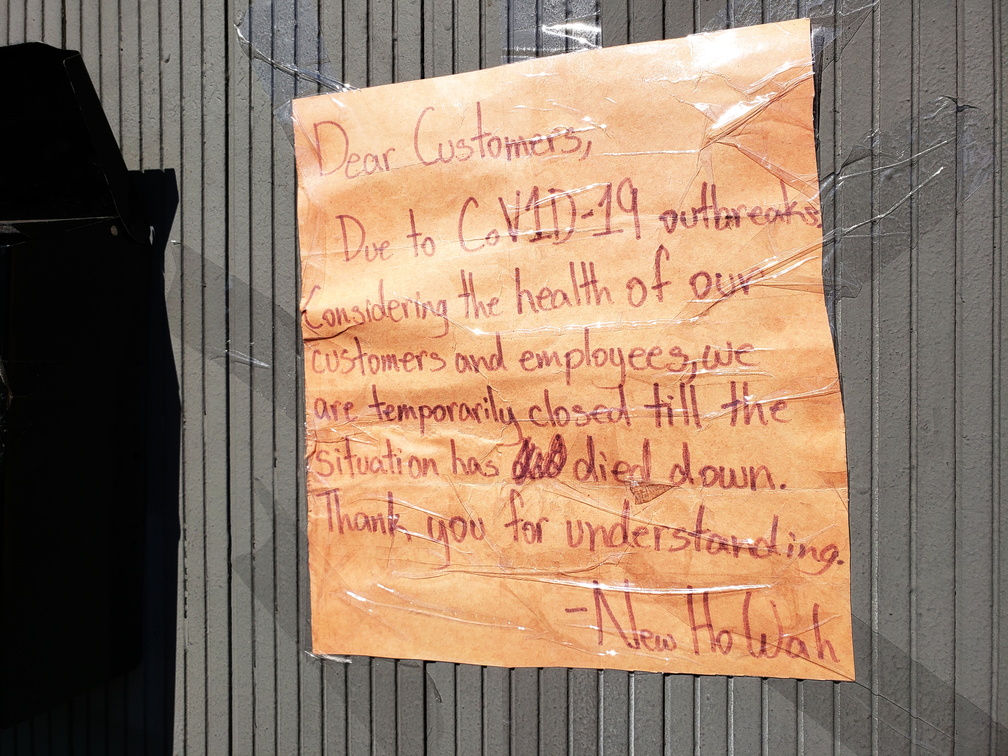 Dear Customers,
Due to CoV1D-19 outbreaks,
Considering the health of our
customers and employees, we
are temporarily closed till the
situation has died down.
Thank you for understanding.
-New Ho Wah